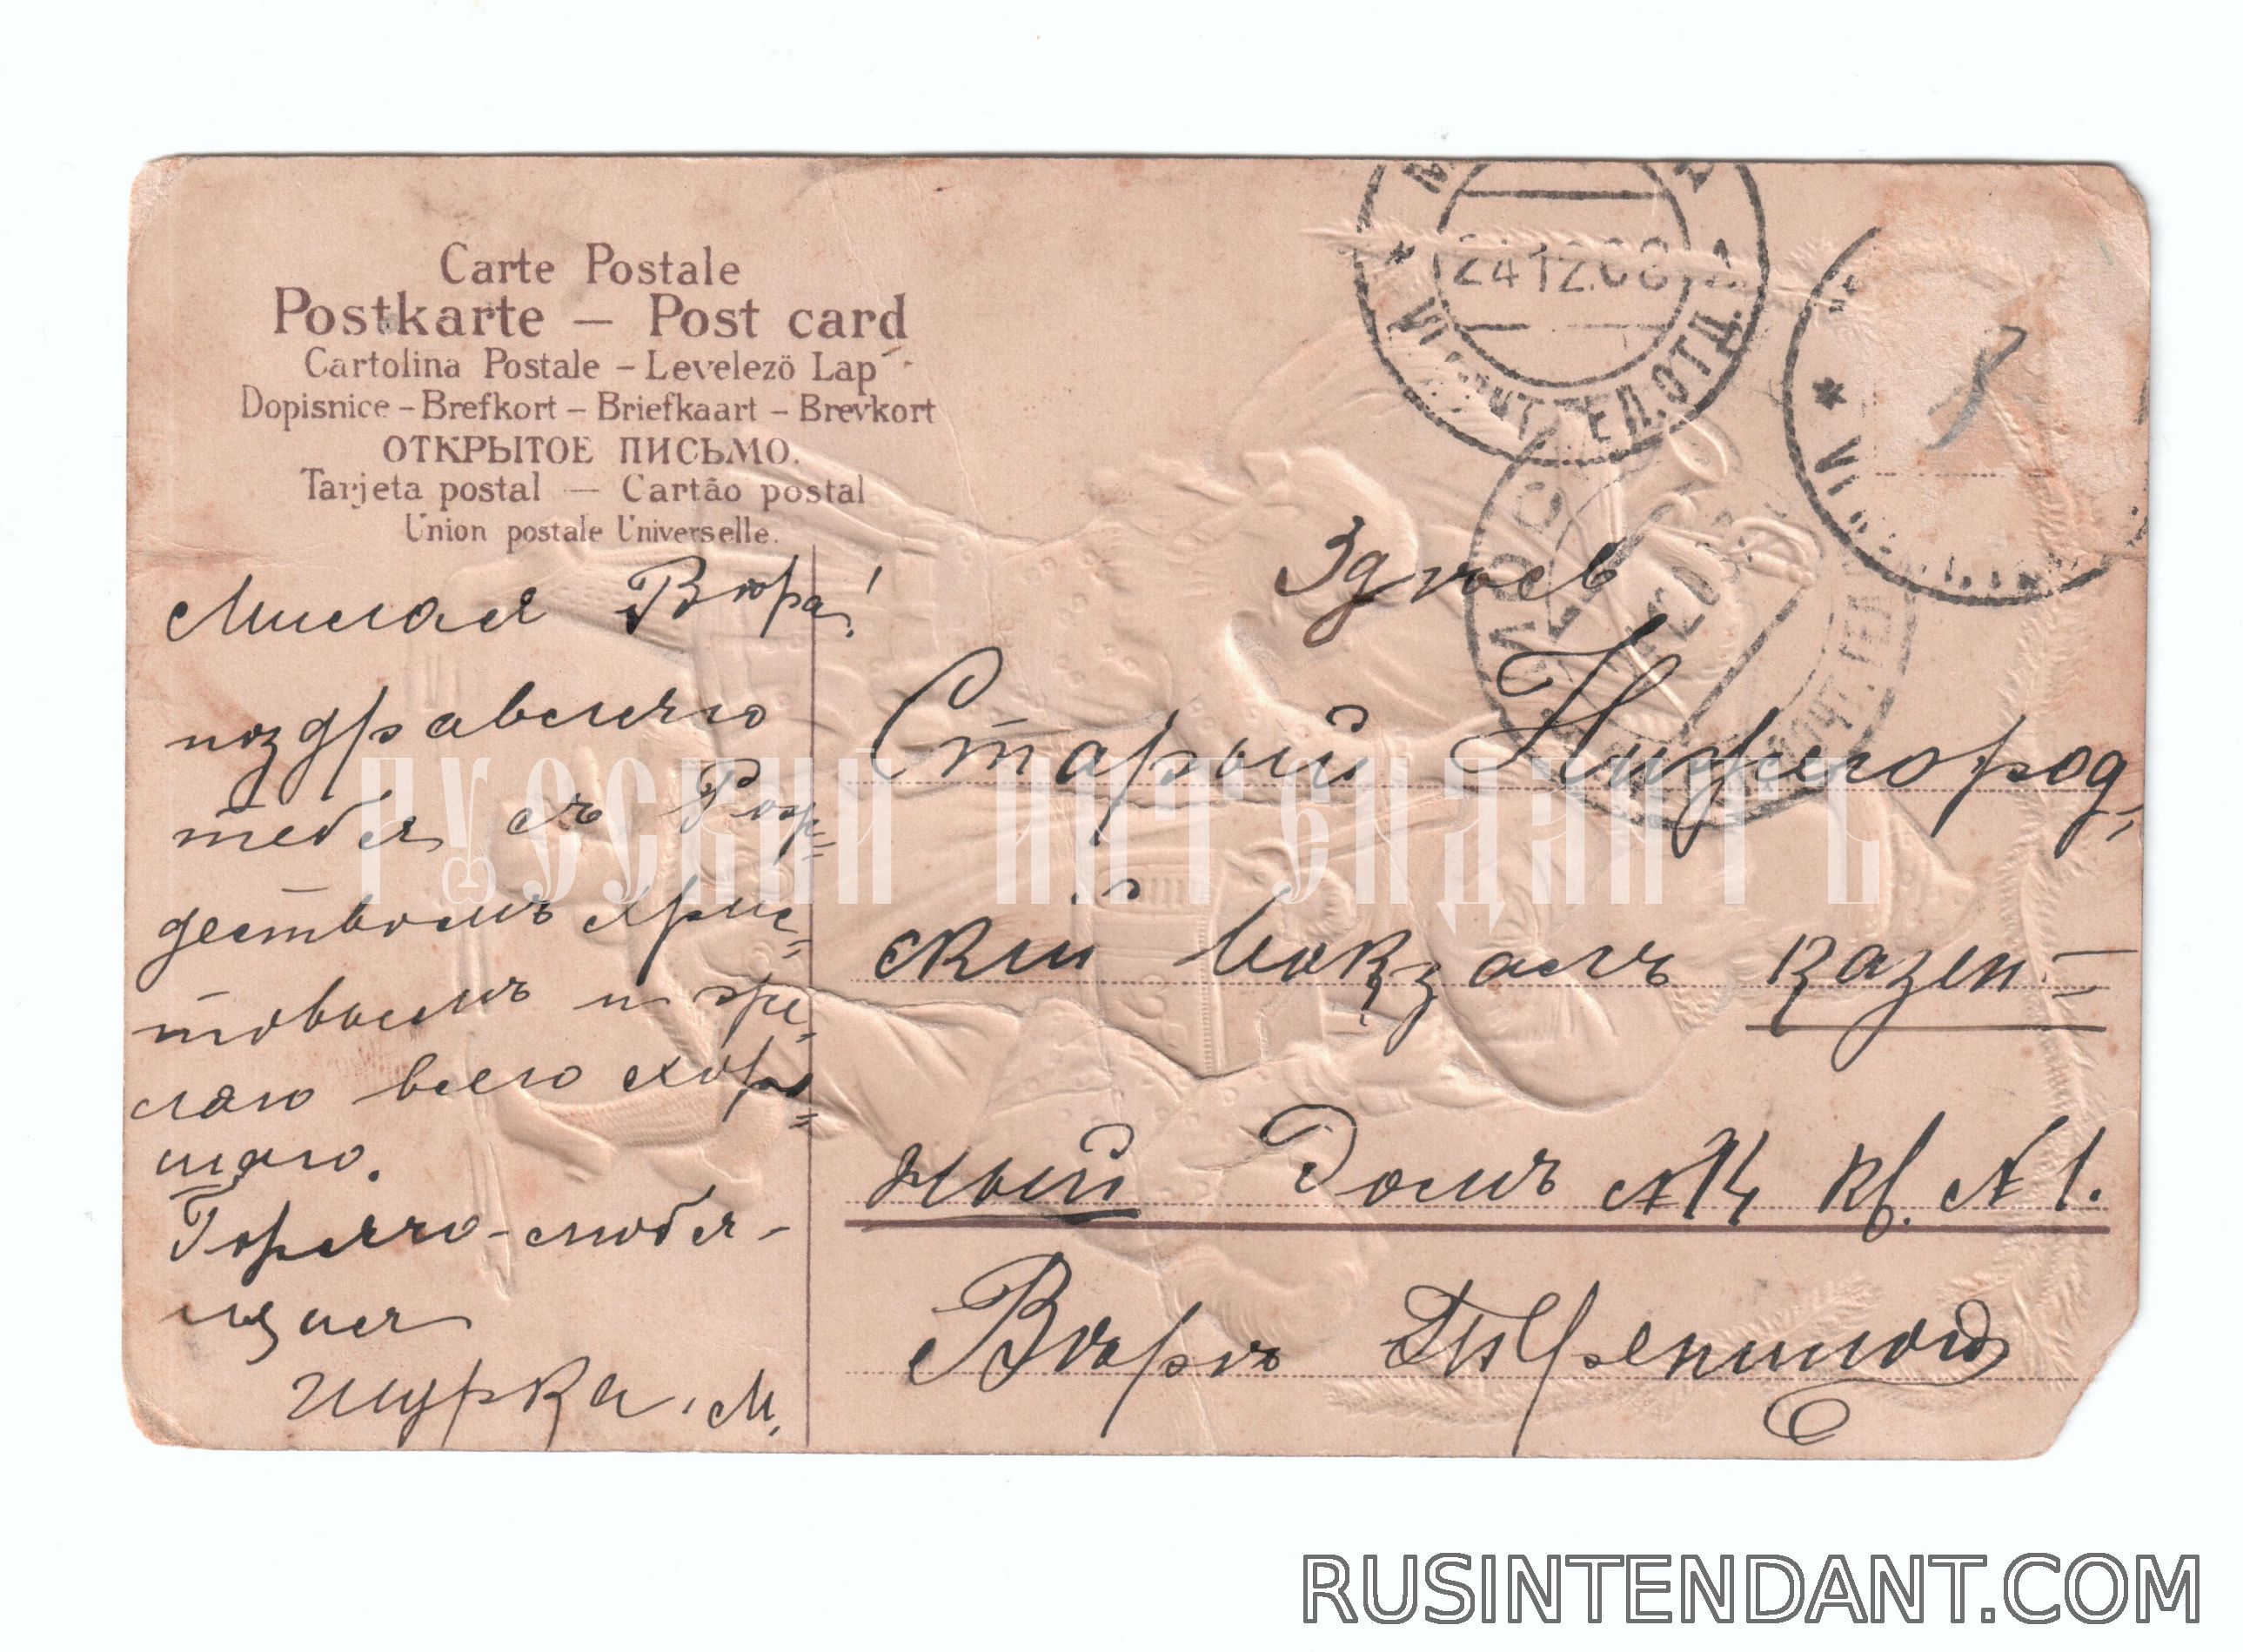 Carte Postale
Postkarte – Post card
Cartolina Postale – Levelező Lap
Dopisnice – Brefkort – Briefkaart – Brevkort
ОТКРЫТОЕ ПИСЬМО.
Tarjeta postal — Cartão postal
Union postale Universelle.
Милая Вѣра!
поздравляю
тебя съ Рож=
дествомъ Хрис=
товымъ и же=
лаю всего хоро=
шаго.
Горячо-любя-
щая
Шурка. М.
24 12.08
ПОЧТ. ТЕЛ. ОТД.
Здѣсь
Старый Нижегород-
скій вокзалъ казен=
ный Домъ №14 кв. №1.
Вѣрѣ
РУССКИЙ ИНТЕНДАНТЪ
RUSINTENDANT.COM